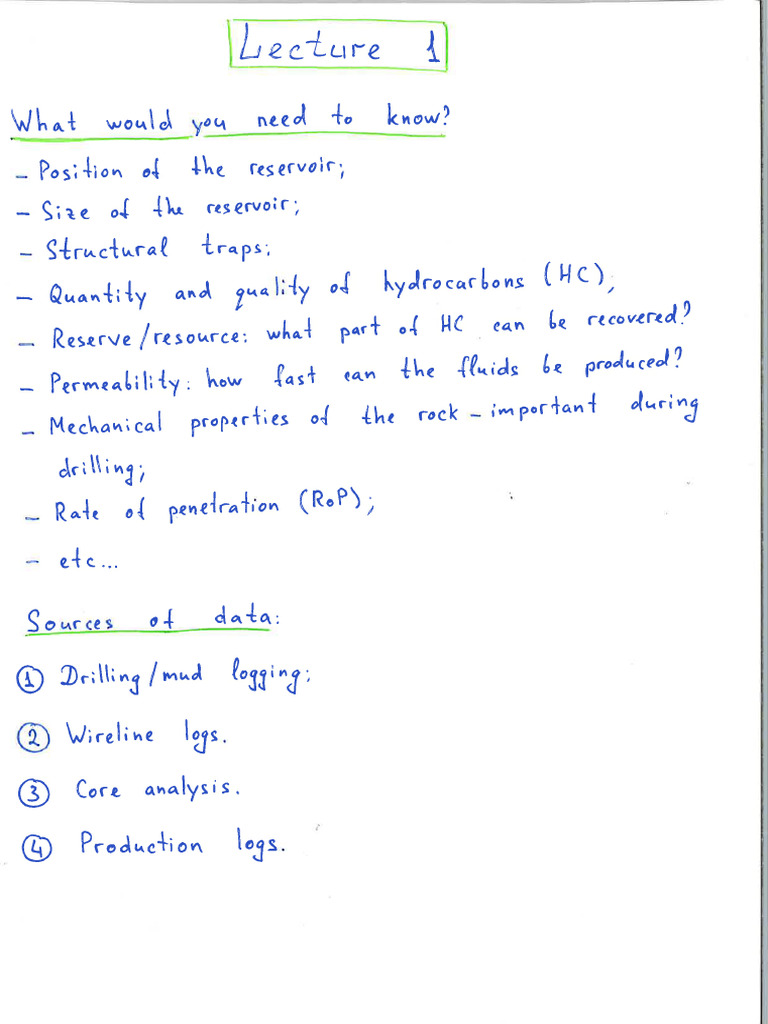 Lecture 1
What would you need to know?
- Position of the reservoir;
- Size of the reservoir;
- Structural traps;
- Quantity and quality of hydrocarbons (HC);
- Reserve/resource: what part of HC can be recovered?
- Permeability: how fast can the fluids be produced?
- Mechanical properties of the rock - important during
drilling;
- Rate of penetration (RoP);
- etc...
Sources of data:
① Drilling/mud logging;
② Wireline logs.
③ Core analysis.
④ Production logs.